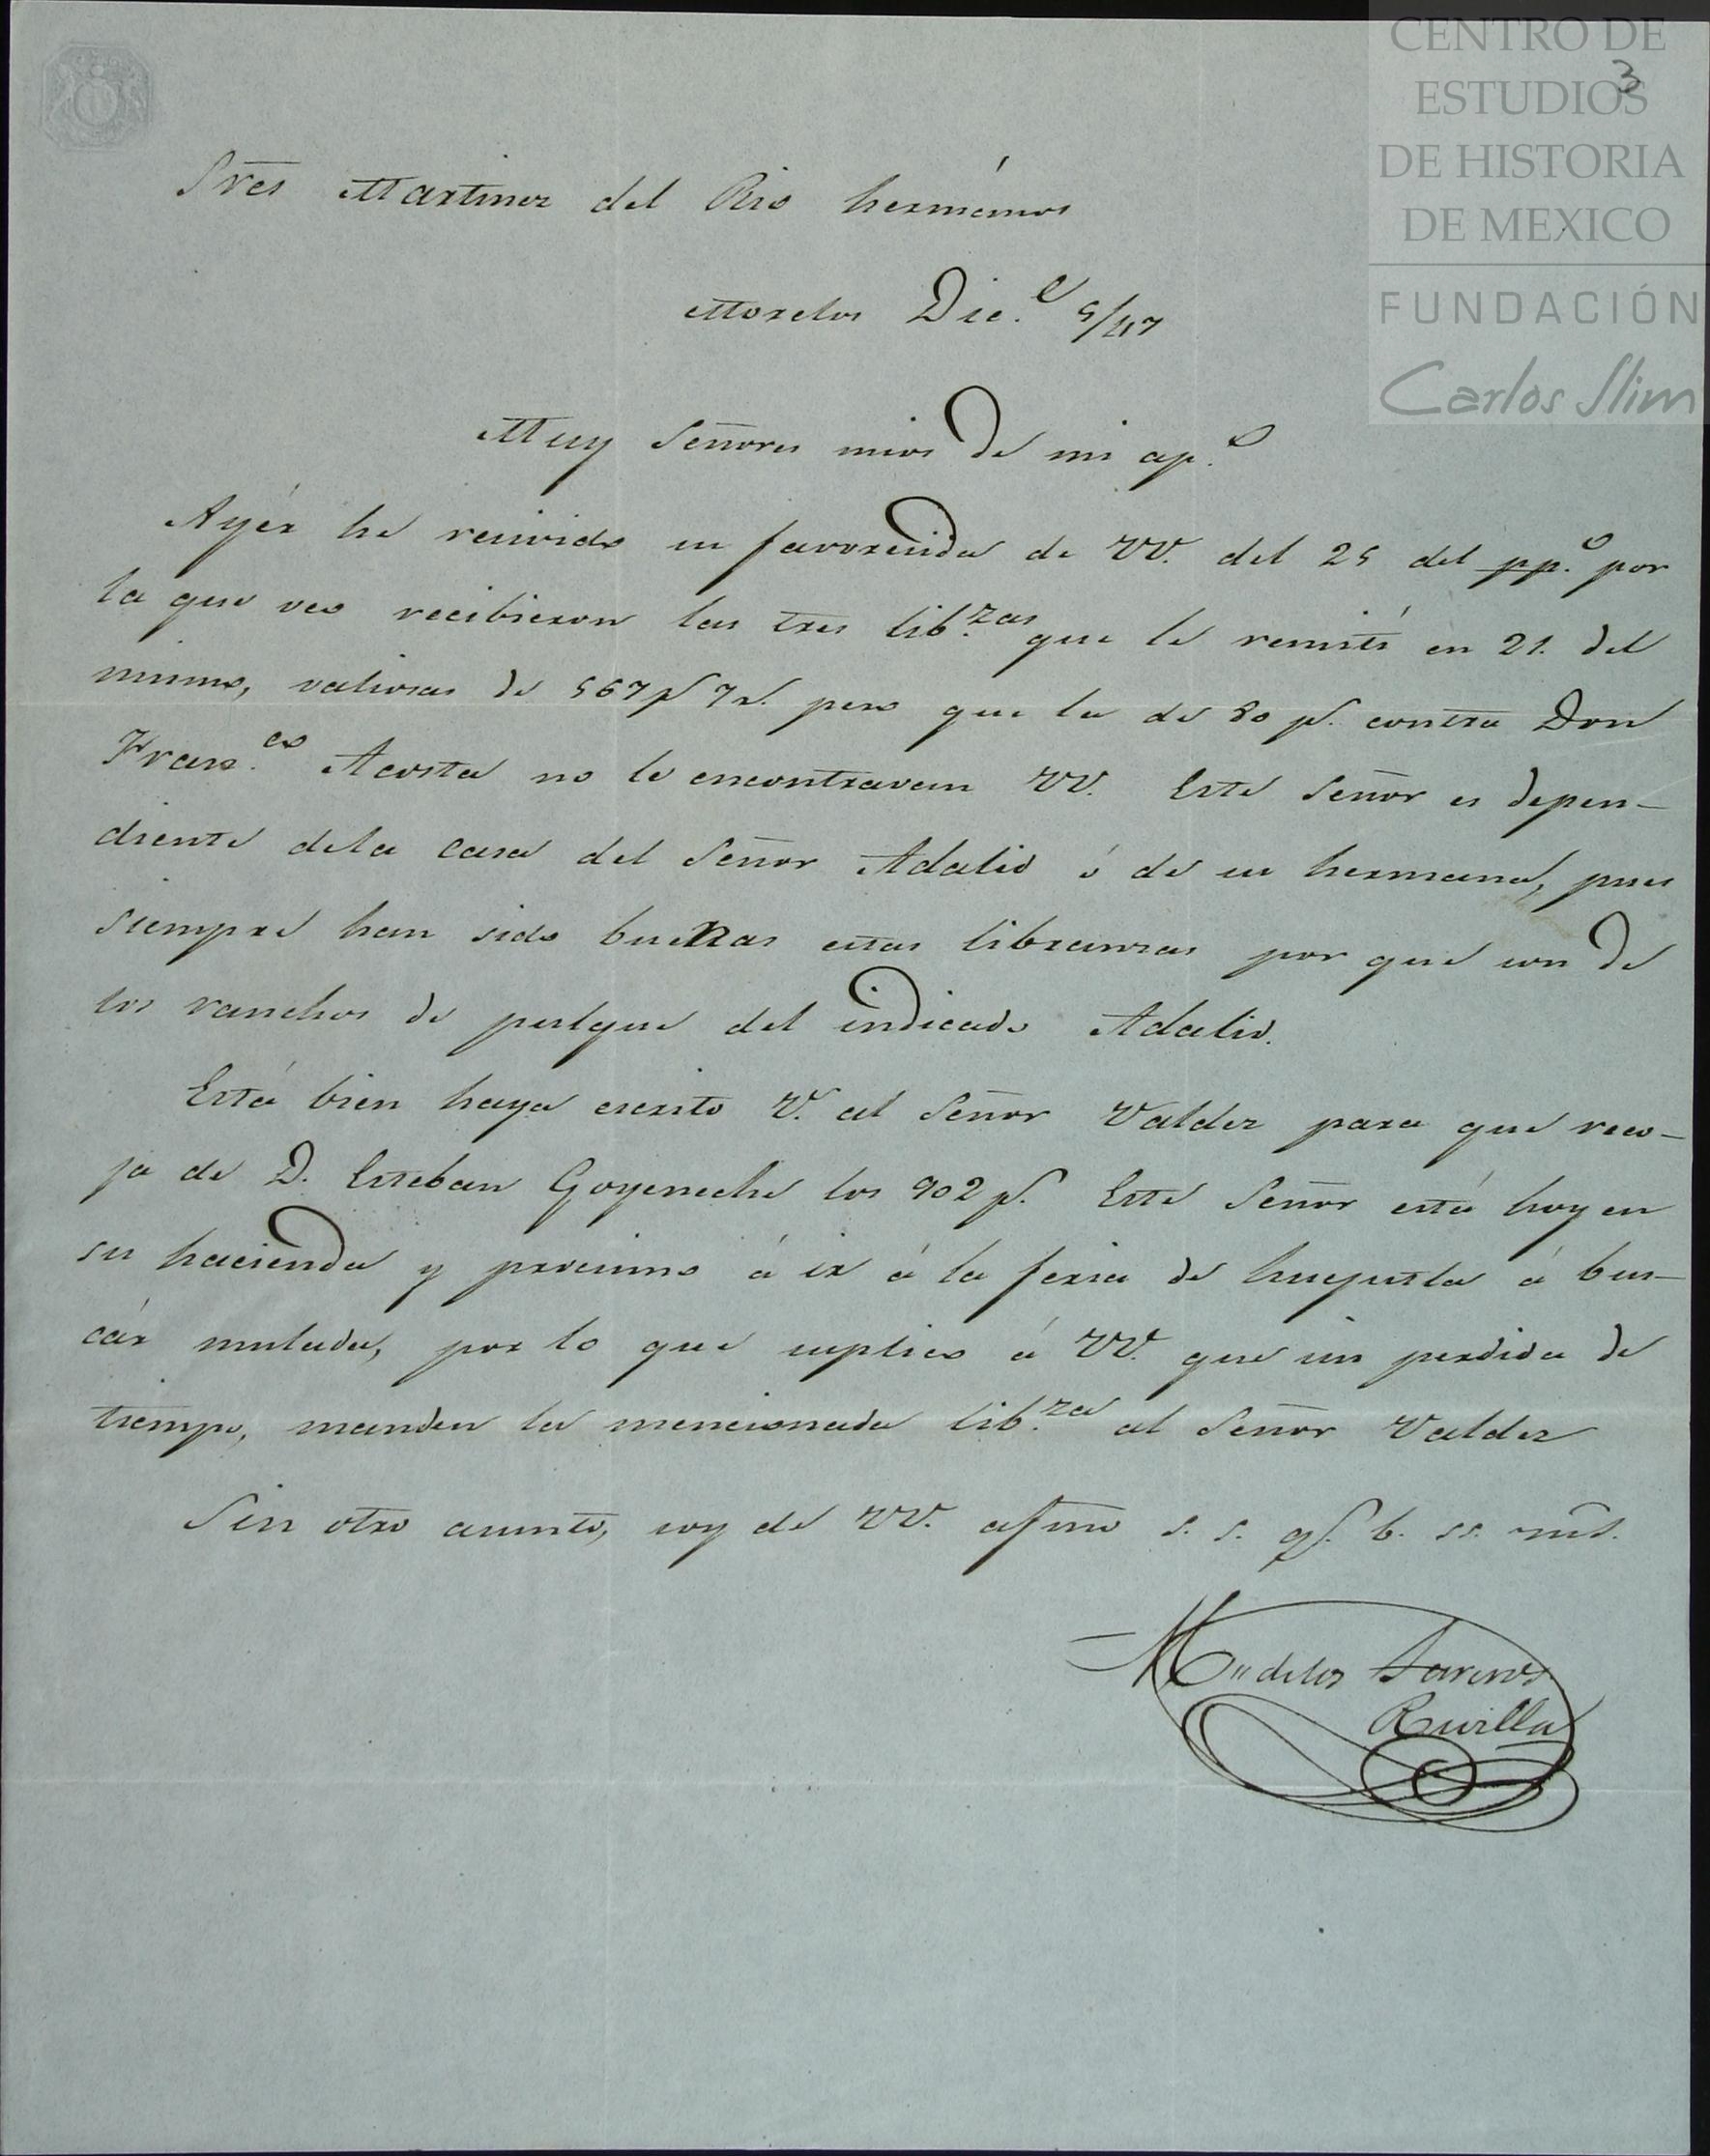 CENTRO DE
ESTUDIOS
DE HISTORIA
DE MEXICO
FUNDACIÓN
Carlos Slim
3
Sres Martinez del Rio hermános
Morelos Dic.e 5/47
Muy Señores mios de mi ap.o
Ayér he recivido su favorecida de VV. del 25 del pp.o por
la que veo recibieron las tres lib.zas que le remití en 21. del
mismo, valiosas de 567 p.s 7 r.s pero que la de 80 p.s contra Don
Fran.co Acosta no lo encontravan VV. Este Señor es depen-
diente dela casa del Señor Adalid ó de su hermana, pues
siempre han sido buenas estas libranzas por que son de
los ranchos de pulque del indicado Adalid.
Está bien haya escrito V. al Señor Valdez para que reco-
ja de D. Esteban Goyeneche los 902 p.s Este Señor está hoy en
su hacienda y procsimo á ir á la feria de huejutla á bus-
cár mulada, por lo que suplico á VV. que sin perdida de
tiempo, manden la mencionada lib.za al Señor Valdez
Sin otro asunto, soy de VV. afmo s. s. q.s b. ss. ms.
M. delos
Revilla